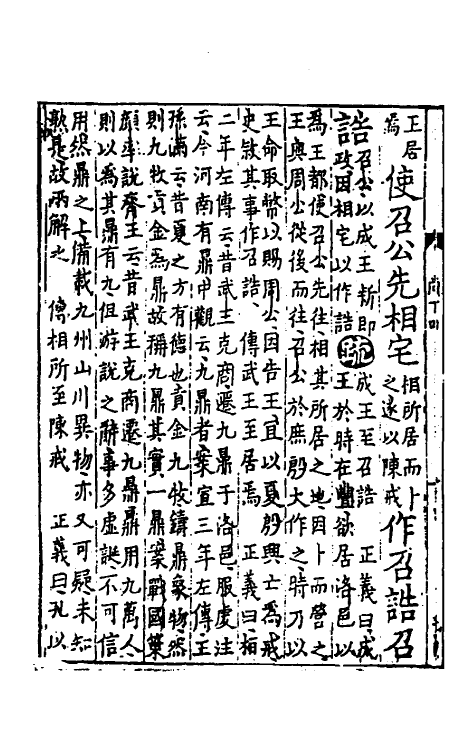 王居焉使召公先相宅相所居而卜之遂以陳戒作召誥召
誥召公以成王新即政因相宅以作誥疏成王至召誥 正義曰成
王於時在豐欲居洛邑以
為王都使召公先往相其所居之地因卜而營之
王與周公從後而往召公於庶殷大作之時乃以
王命取幣以賜周公因告王宜以夏殷興亡為戒
史敘其事作召誥 傳武王至居焉 正義曰桓
二年左傳云昔武王克商遷九鼎于洛邑服虔注
云今河南有鼎中觀云九鼎者案宣三年左傳王
孫滿云昔夏之方有德也貢金九牧鑄鼎象物然
則九牧貢金為鼎故稱九鼎其實一鼎案戰國策
顏率說齊王云昔武王克商遷九鼎鼎用九萬人
則以為其鼎有九但游說之辭事多虛誕不可信
用然鼎之上備載九州山川異物亦又可疑未知
孰是故兩解之 傳相所至陳戒 正義曰孔以